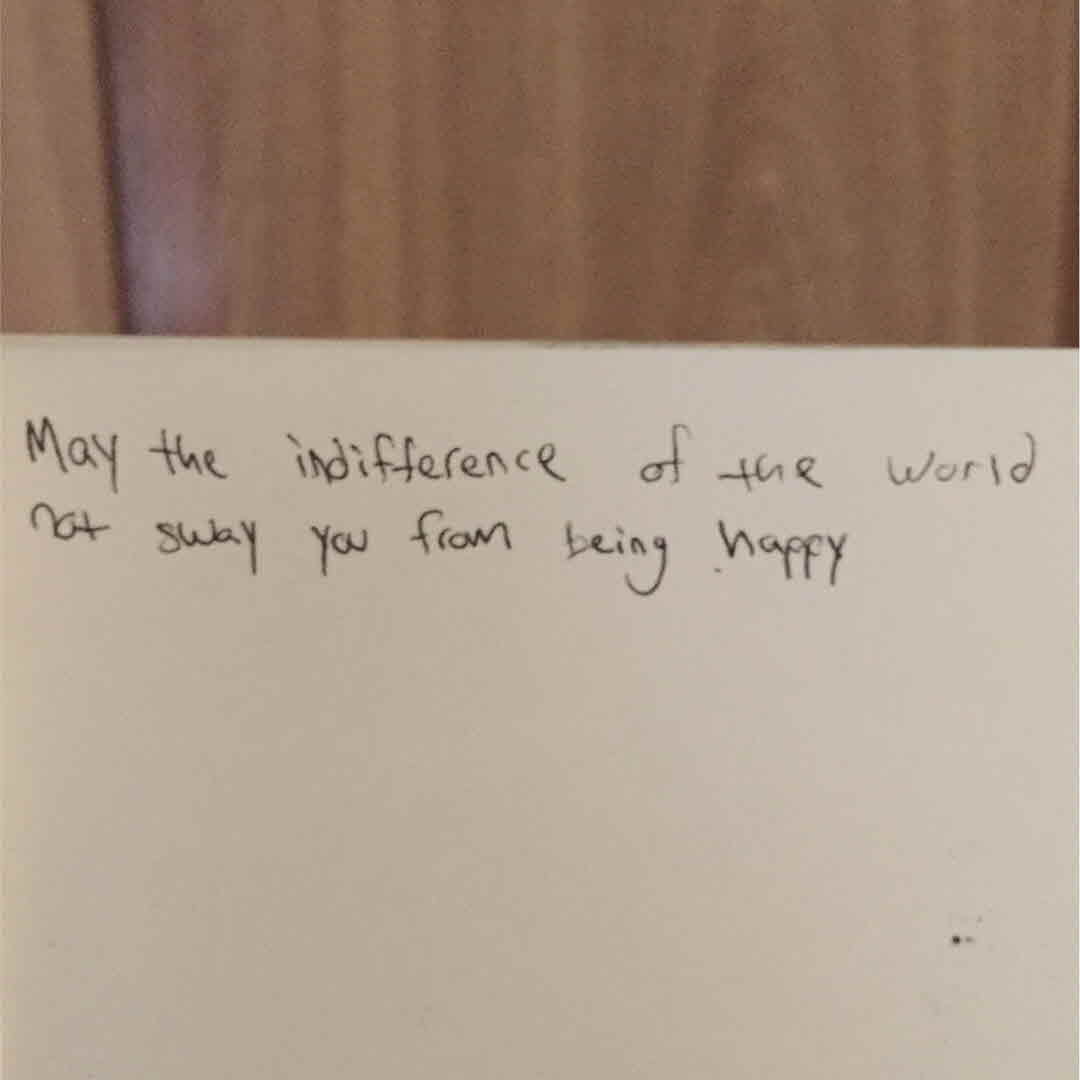 May the indifference of the world
not sway you from being happy